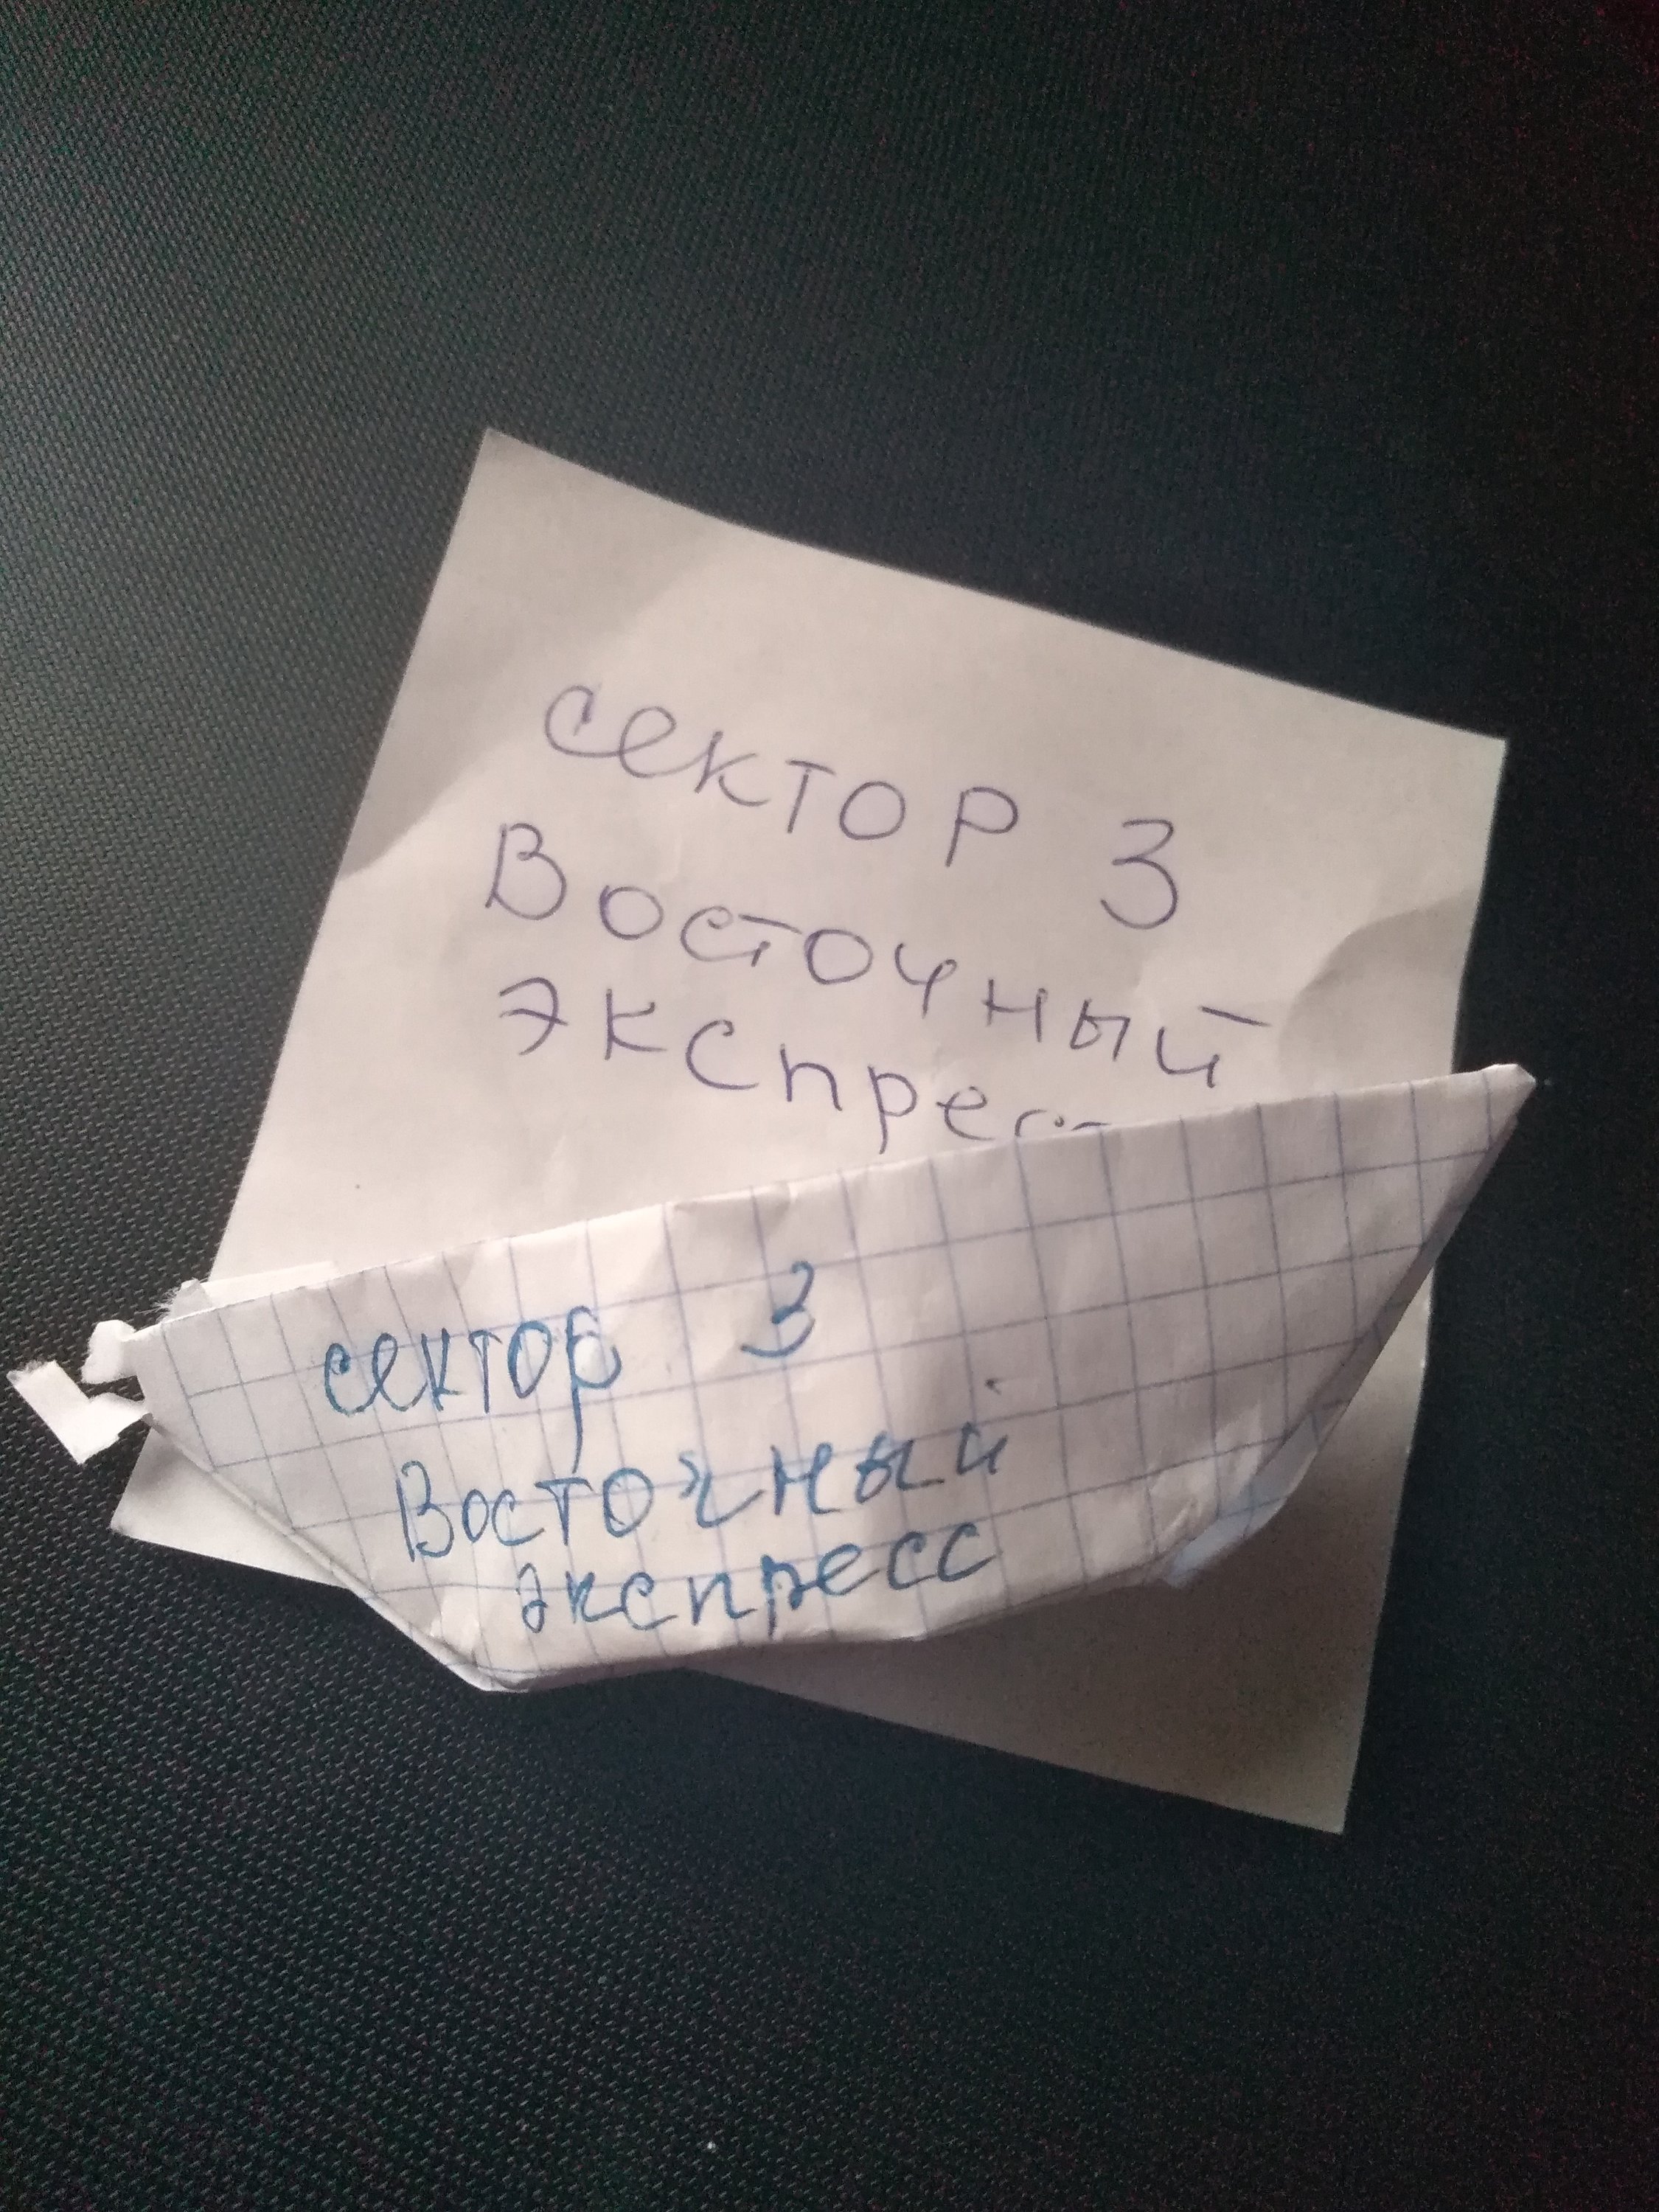 сектор 3
Восточный
экспресс
сектор 3
Восточный
экспресс